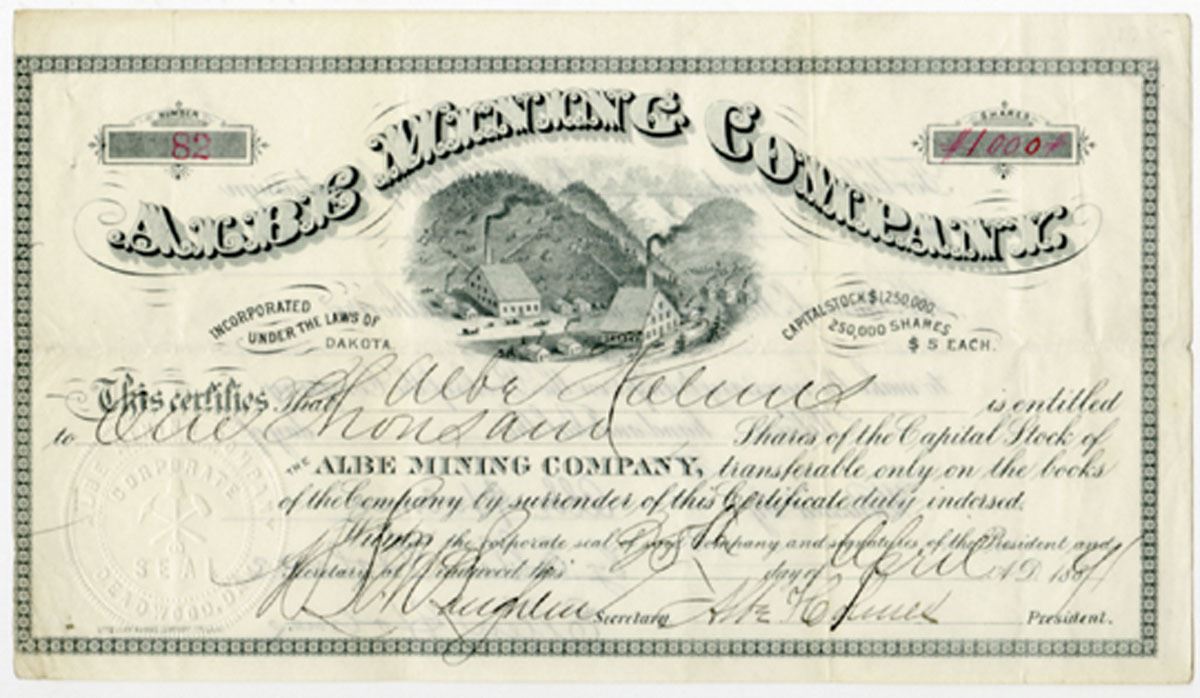 NUMBER
82
SHARES
1000
ALBE MINING COMPANY.
INCORPORATED
UNDER THE LAWS OF
DAKOTA
CAPITAL STOCK $1,250,000.
250,000 SHARES
$5 EACH.
This certifies That Albe Holmes is entitled
to One Thousand Shares of the Capital Stock of
THE ALBE MINING COMPANY, transferable only on the books
of the Company by surrender of this Certificate duly indorsed.
Witness the corporate seal of said Company and signatures of the President and
Secretary at Deadwood, this day of April A.D. 18
Secretary Albe Holmes President.
ALBE MINING COMPANY
CORPORATE
SEAL
DEADWOOD, D.